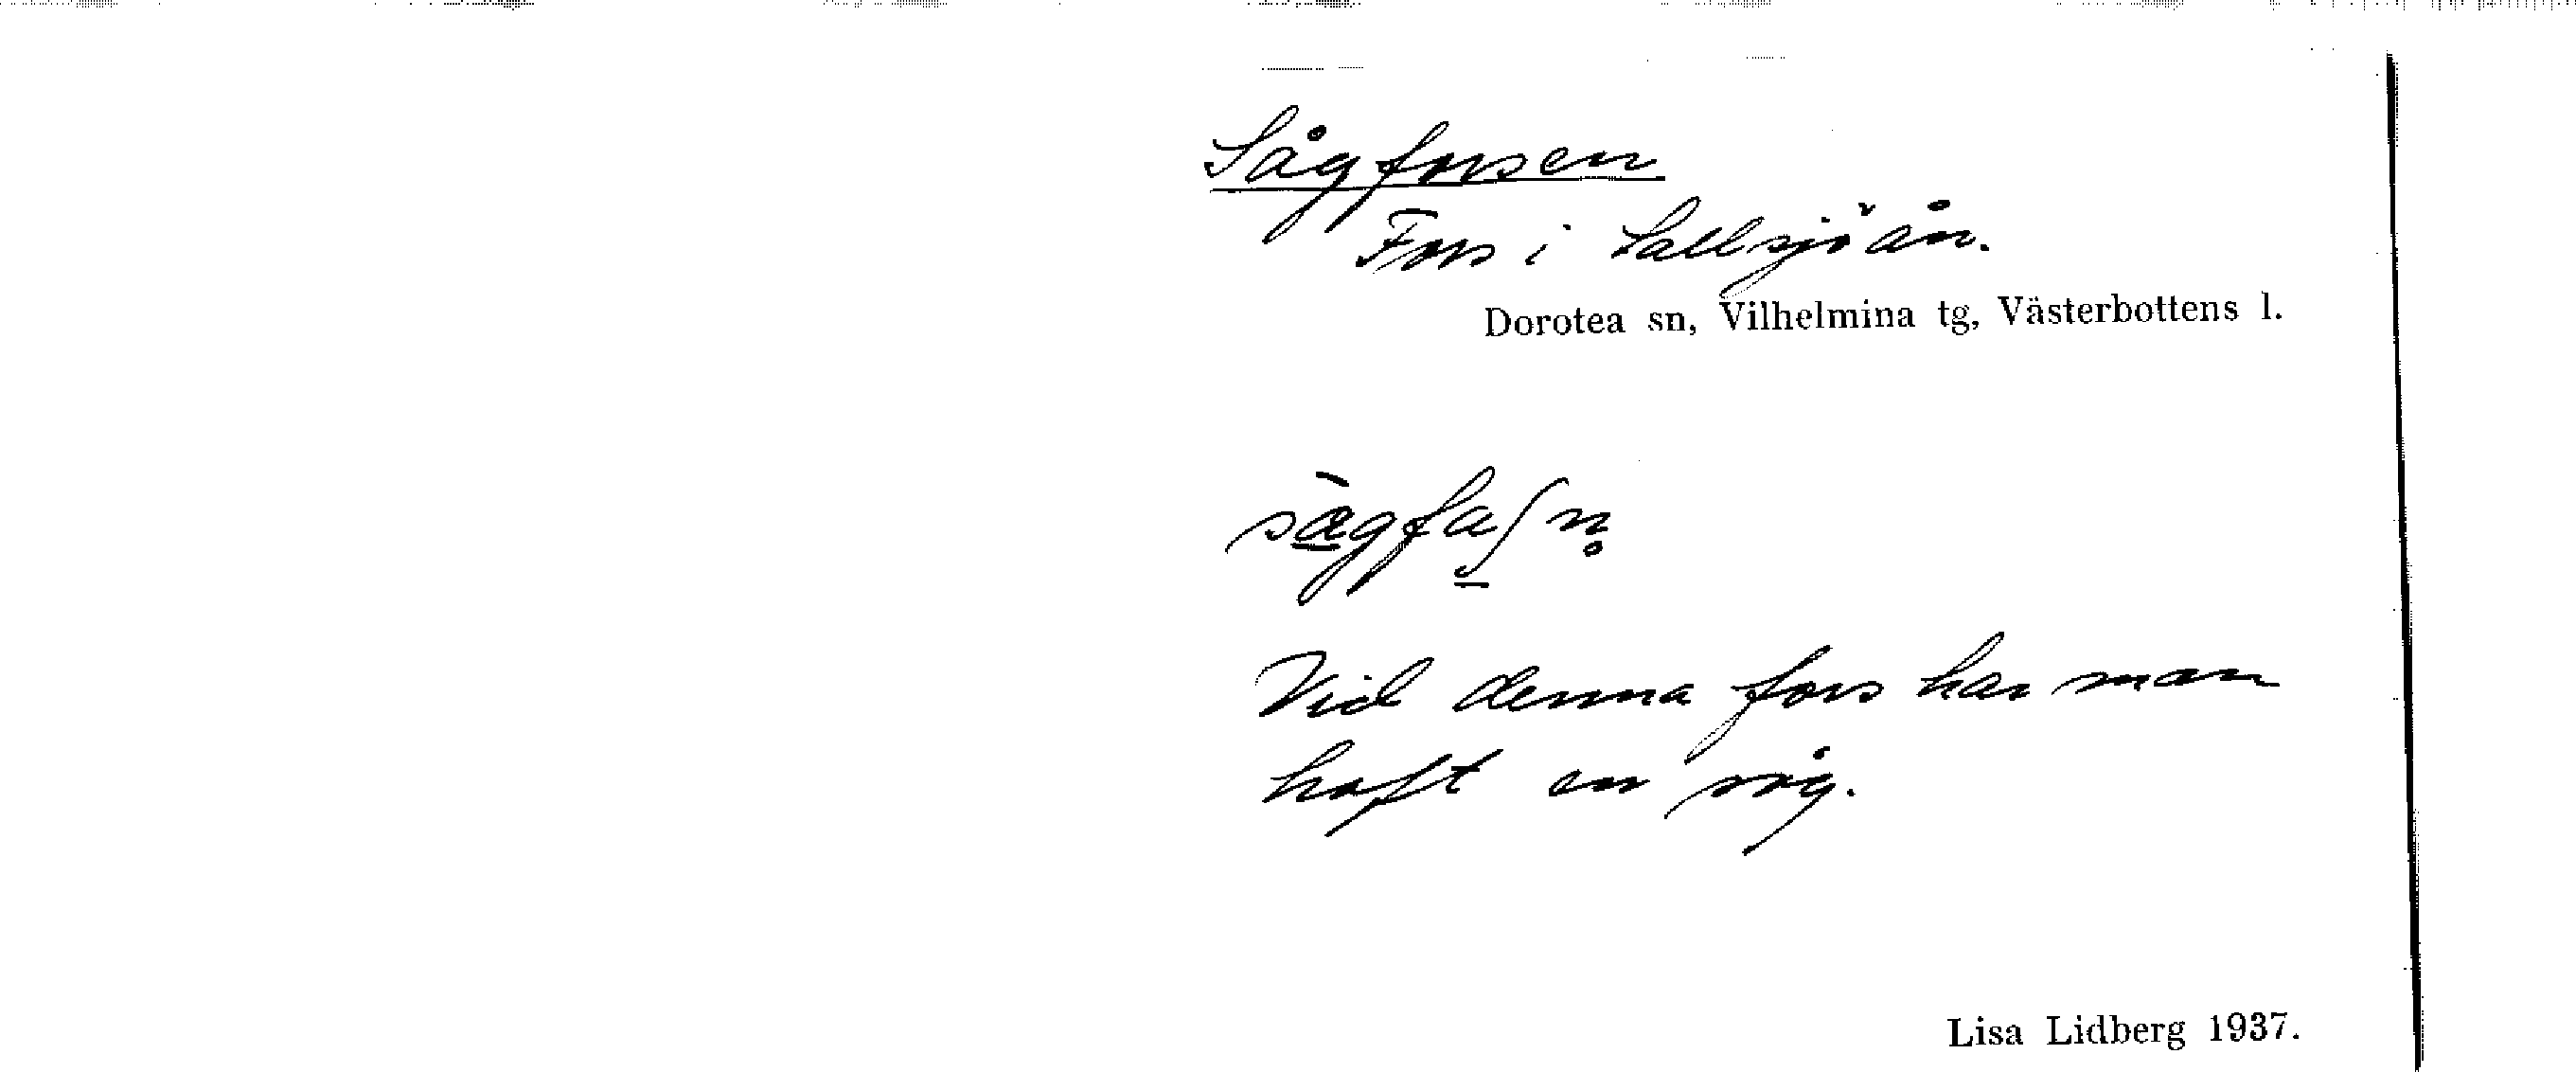 Sågforsen
Fors i Sallsjöån.
Dorotea sn, Vilhelmina tg, Västerbottens l.
Vid denna fors har man
haft en såg.
Lisa Lidberg 1937.